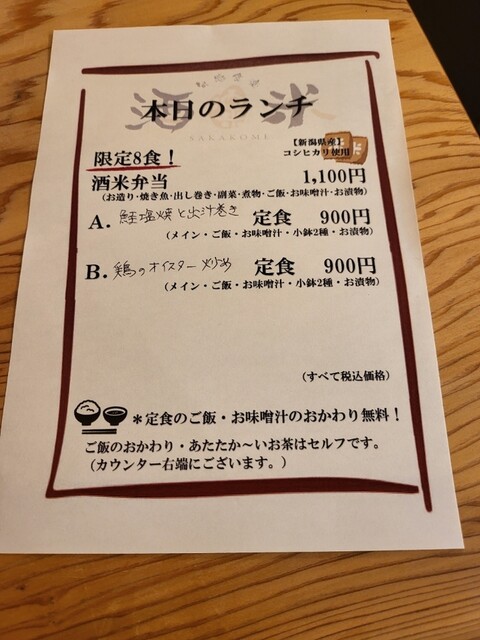 本日のランチ
酒 米
SAKAKOME
【新潟県産】
コシヒカリ使用
限定8食！
酒米弁当 1,100円
(お造り・焼き魚・出し巻き・副菜・煮物・ご飯・お味噌汁・お漬物)
A. 鮭塩焼と出汁巻き 定食 900円
(メイン・ご飯・お味噌汁・小鉢2種・お漬物)
B. 鶏のオイスター炒め 定食 900円
(メイン・ご飯・お味噌汁・小鉢2種・お漬物)
(すべて税込価格)
＊定食のご飯・お味噌汁のおかわり無料！
ご飯のおかわり・あたたか～いお茶はセルフです。
(カウンター右端にございます。)